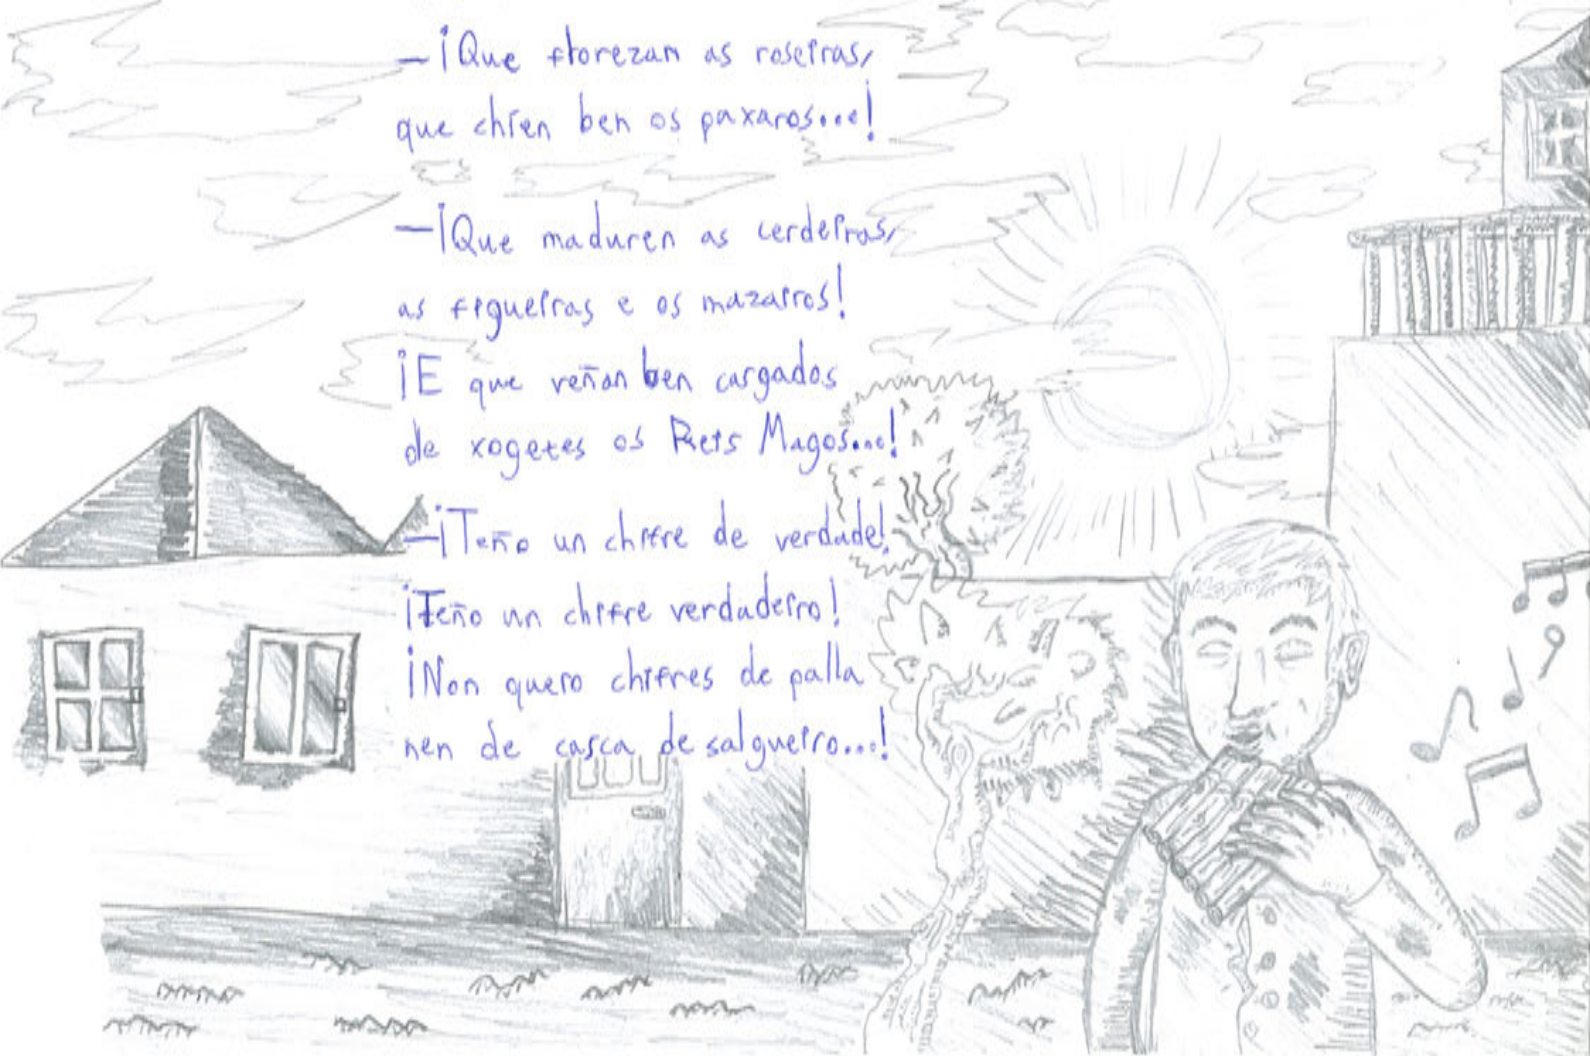 —¡Que florezan as roseiras,
que chíen ben os paxaros...!
—¡Que maduren as cerdeiras,
as figueiras e os mazairos!
¡E que veñan ben cargados
de xogetes os Reis Magos...!
—¡Teño un chifre de verdade!
¡Teño un chifre verdadeiro!
¡Non quero chifres de palla
nen de casca de salgueiro...!